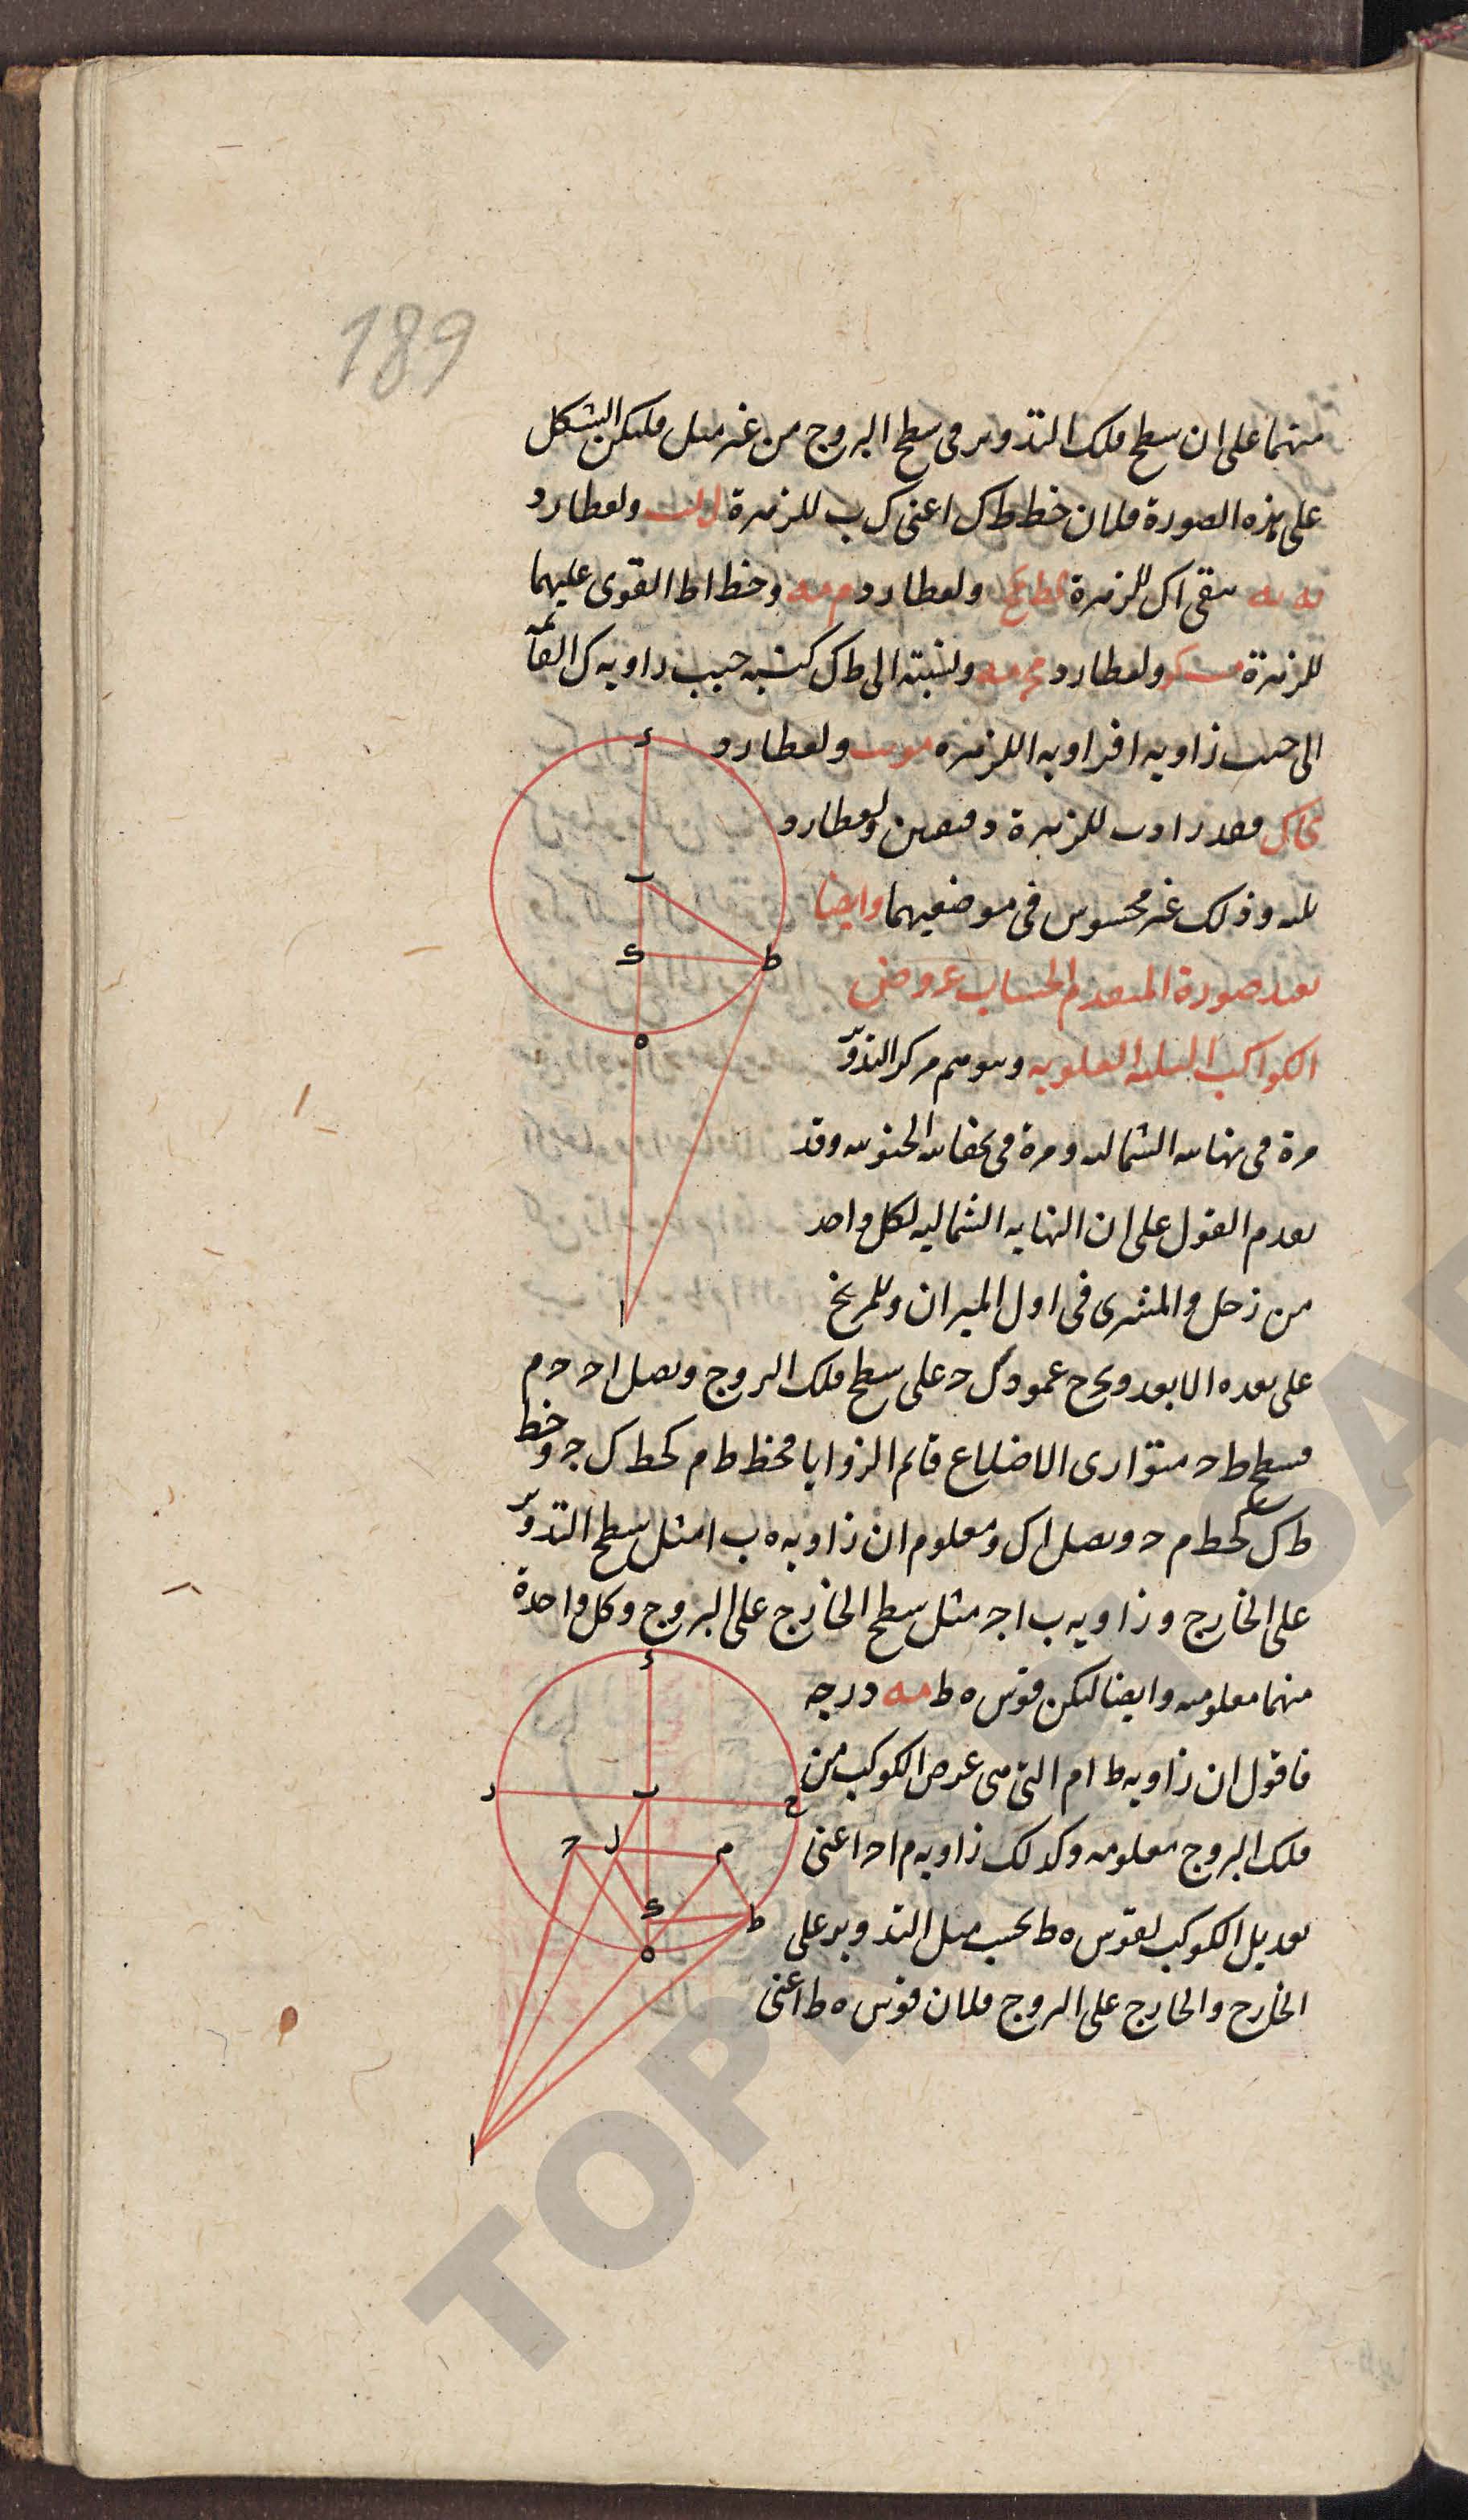 189
منهما على ان سطح فلك التدوير فى سطح البروج من غير ميل فليكن الشكل
على هذه الصورة فلان خط ط ك اعنى ك ب للزهرة ل لب ولعطارد
يه يه يبقى ا ك للزهرة كط كح ولعطارد م مه وخط ا ط القوى عليهما
للزهرة ولعطارد مج مه ونسبته الى ط ك كنسبة جيب زاويه ك القائمة
الى جيب زاويه ا فزاويه ا للزهره ولعطارد
كا ك للزهرة دقيقتين ولعطارد
ثلثه وذلك غير محسوس فى موضعيهما وايضا
نعيد صورة المتقدم لحساب عروض
الكواكب الثلثه العلويه وهو مركز التدوير
مرة فى نهايته الشماليه ومرة فى نهايته الجنوبيه وقد
تقدم القول على ان النهايه الشماليه لكل واحد
من زحل والمشترى فى اول الميزان وللمريخ
على بعده الابعد ونخرج عمود ك ح على سطح فلك البروج ونصل ا ح ح م
فسطح ط ح متوازى الاضلاع قائم الزوايا فخط ط م كخط ك ح وخط
ط ك كخط م ح ونصل ا ك ومعلوم ان زاويه ه ب ا مثل سطح التدوير
على الخارج وزاويه ب ا ح مثل سطح الخارج على البروج وكل واحدة
منهما معلومه وايضا ليكن قوس ه ط مه درجه
فاقول ان زاويه ط ا م التى هى عرض الكوكب من
فلك البروج معلومه وكذلك زاويه م ا ح اعنى
تعديل الكوكب لقوس ه ط بحسب ميل التدوير على
الخارج والخارج على البروج فلان قوس ه ط اعنى
ء
ب
ك
ط
ه
ا
ء
ب
ر
ح
ح
ل
م
ك
ط
ه
ا
TOPKAPI SA